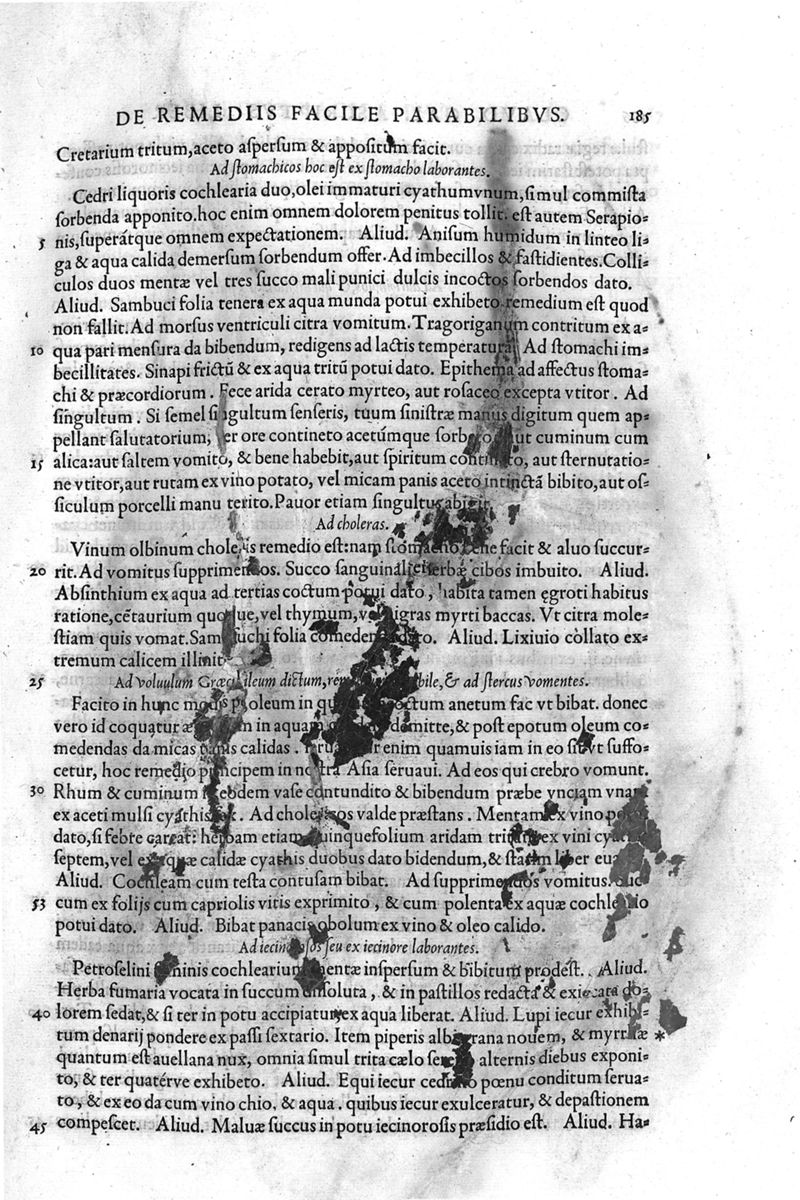 DE REMEDIIS FACILE PARABILIBVS. 185
Cretarium tritum,aceto aſperſum & appoſitum facit.
Ad ſtomachicos hoc eſt ex ſtomacho laborantes.
Cedri liquoris cochlearia duo,olei immaturi cyathum vnum,ſimul commiſta
ſorbenda apponito.hoc enim omnem dolorem penitus tollit. eſt autem Serapio⸗
5 nis,ſuperátque omnem expectationem. Aliud. Aniſum humidum in linteo li⸗
ga & aqua calida demerſum ſorbendum offer. Ad imbecillos & faſtidientes. Colli⸗
culos duos mentæ vel tres ſucco mali punici dulcis incoctos ſorbendos dato.
Aliud. Sambuci folia tenera ex aqua munda potui exhibeto remedium eſt quod
non fallit. Ad morſus ventriculi citra vomitum. Tragoriganum contritum ex a⸗
10 qua pari menſura da bibendum, redigens ad lactis temperatura Ad ſtomachi im⸗
becillitates. Sinapi frictũ & ex aqua tritũ potui dato. Epithema ad affectus ſtoma⸗
chi & præcordiorum. Fece arida cerato myrteo, aut roſaceo excepta vtitor. Ad
ſingultum. Si ſemel ſingultum ſenſeris, tuum ſiniſtræ manus digitum quem ap⸗
pellant ſalutatorium, ore contineto acetúmque aut cuminum cum
15 alica:aut ſaltem vomito, & bene habebit,aut ſpiritum aut ſternutatio⸗
ne vtitor,aut rutam ex vino potato, vel micam panis aceto intinctã bibito,aut oſ⸗
ſiculum porcelli manu terito. Pauor etiam ſingultus abigit.
Ad choleras.
Vinum olbinum remedio eſt:nam ſtomacho bene facit & aluo ſuccur⸗
20 rit. Ad vomitus ſupprimendos. Succo ſanguinalis herbæ cibos imbuito. Aliud.
Abſinthium ex aqua ad tertias coctum potui dato, habita tamen ęgroti habitus
ratione,cẽtaurium quoque,vel thymum,vel nigras myrti baccas. Vt citra mole⸗
ſtiam quis vomat. folia dato. Aliud. Lixiuio còllato ex⸗
tremum calicem illinito
25 Ad voluulum Græcis ileum dictum, & ad ſtercus vomentes.
Facito in hunc modum oleum in anetum fac vt bibat. donec
vero id coquatur in aquam demitte,& poſt epotum oleum co⸗
medendas da micas panis calidas. enim quamuis iam in eo ſit vt ſuffo⸗
cetur, hoc remedio principem in noſtra Aſia ſeruaui. Ad eos qui crebro vomunt.
30 Rhum & cuminum eodem vaſe contundito & bibendum præbe vnciam vnam
ex aceti mulſi cyathis Ad cholericos valde præſtans. Mentam ex vino
dato,ſi febre careat: herbam etiam quinquefolium aridam tritam ex vini
ſeptem,vel ex aquæ calidæ cyathis duobus dato bidendum,& ſtatim liber
Aliud. Cochleam cum teſta contuſam bibat. Ad ſupprimendos vomitus.
53 cum ex folijs cum capriolis vitis exprimito, & cum polenta ex aquæ
potui dato. Aliud. Bibat panacis obolum ex vino & oleo calido.
Ad iecinoroſos ſeu ex iecinore laborantes.
Petroſelini ſeminis cochlearium mentæ inſperſum & bibitum prodeſt. Aliud.
Herba fumaria vocata in ſuccum diſſoluta, & in paſtillos redacta & exiccata do⸗
40 lorem ſedat,& ſi ter in potu accipiatur ex aqua liberat. Aliud. Lupi iecur exhibi⸗
tum denarij pondere ex paſſi ſextario. Item piperis albi grana nouem, & myrrhæ *
quantum eſt auellana nux, omnia ſimul trita cælo ſereno alternis diebus exponi⸗
to, & ter quatérve exhibeto. Aliud. Equi iecur pœnu conditum ſerua⸗
to, & ex eo da cum vino chio, & aqua. quibus iecur exulceratur, & depaſtionem
45 compeſcet. Aliud. Maluæ ſuccus in potu iecinoroſis præſidio eſt. Aliud. Ha⸗